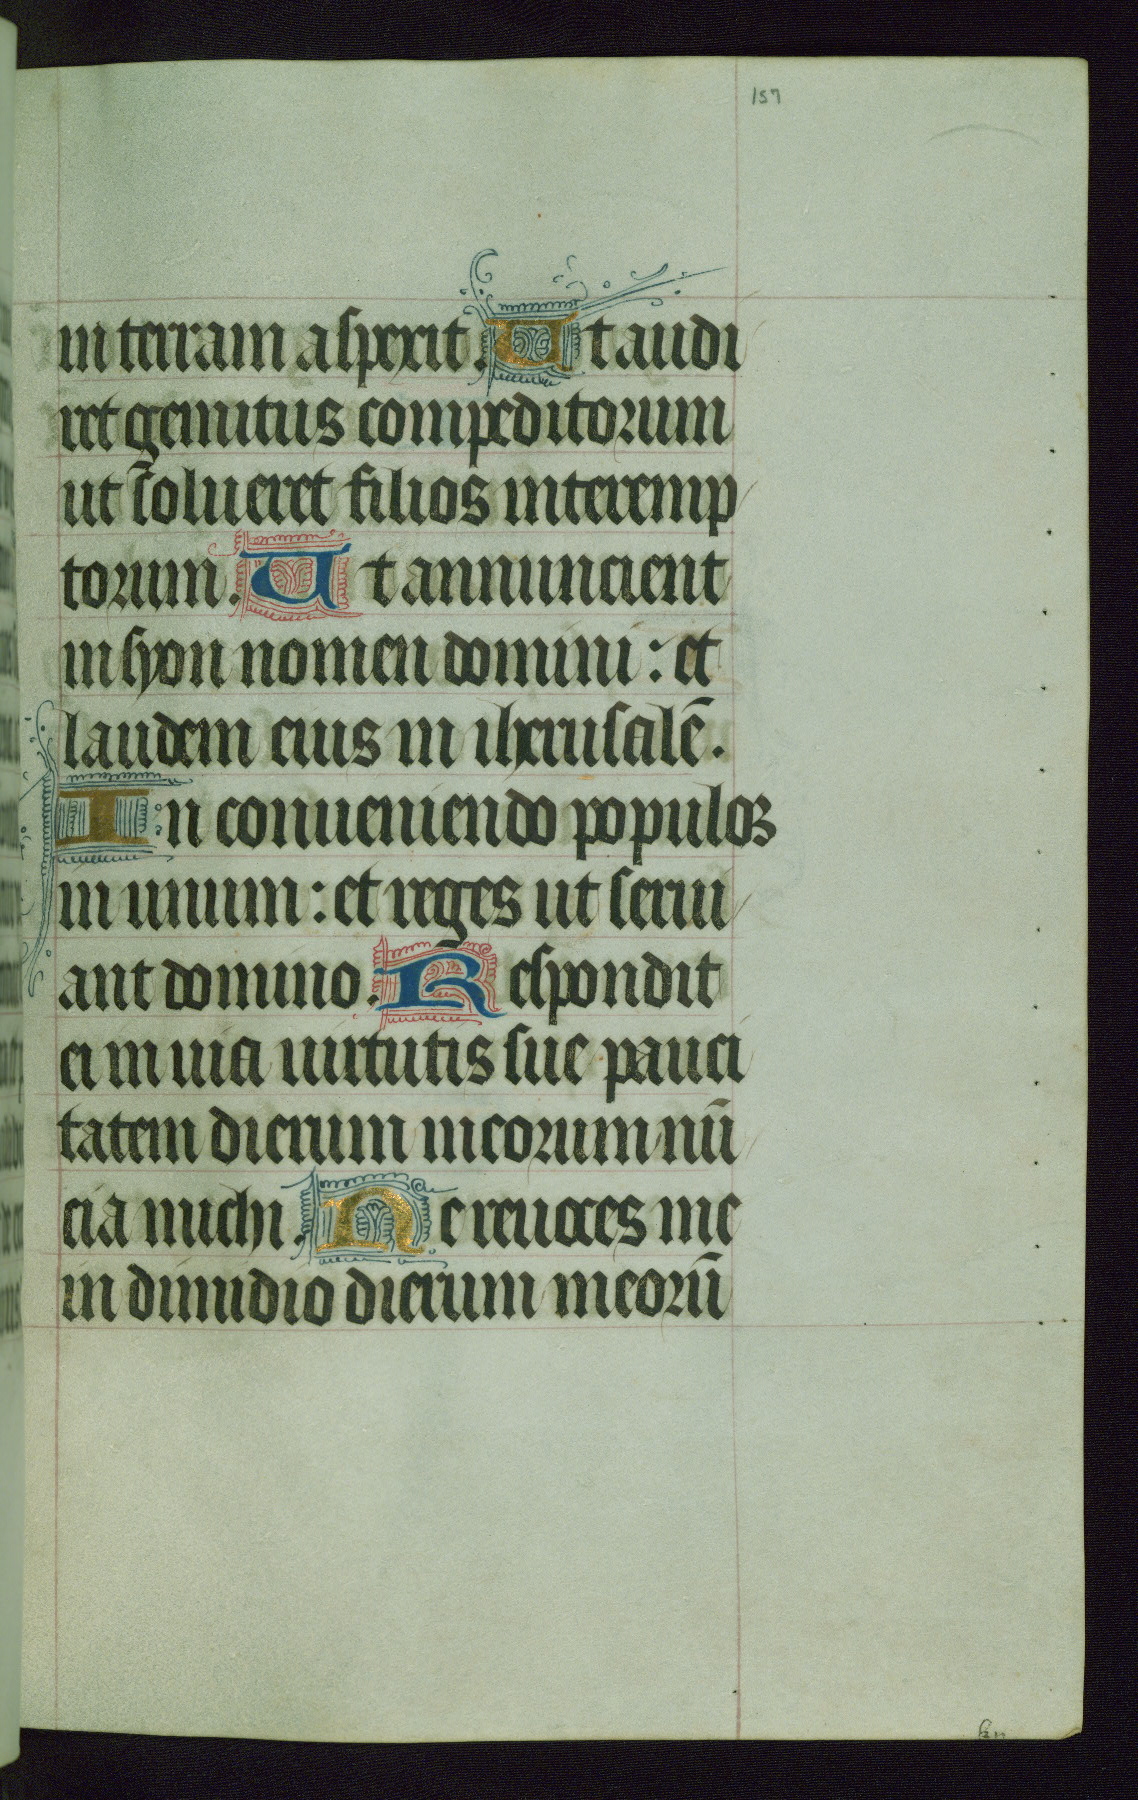 157
in terram aspexit. Ut audi
ret gemitus compeditorum
ut solueret filios interemp
torum. Ut annuncient
in syon nomen domini : et
laudem eius in iherusalē.
In conueniendo populos
in unum : et reges ut serui
ant domino. Respondit
ei in uia uirtutis sue pauci
tatem dierum meorum nū
cia michi. Ne reuoces me
in dimidio dierum meorū